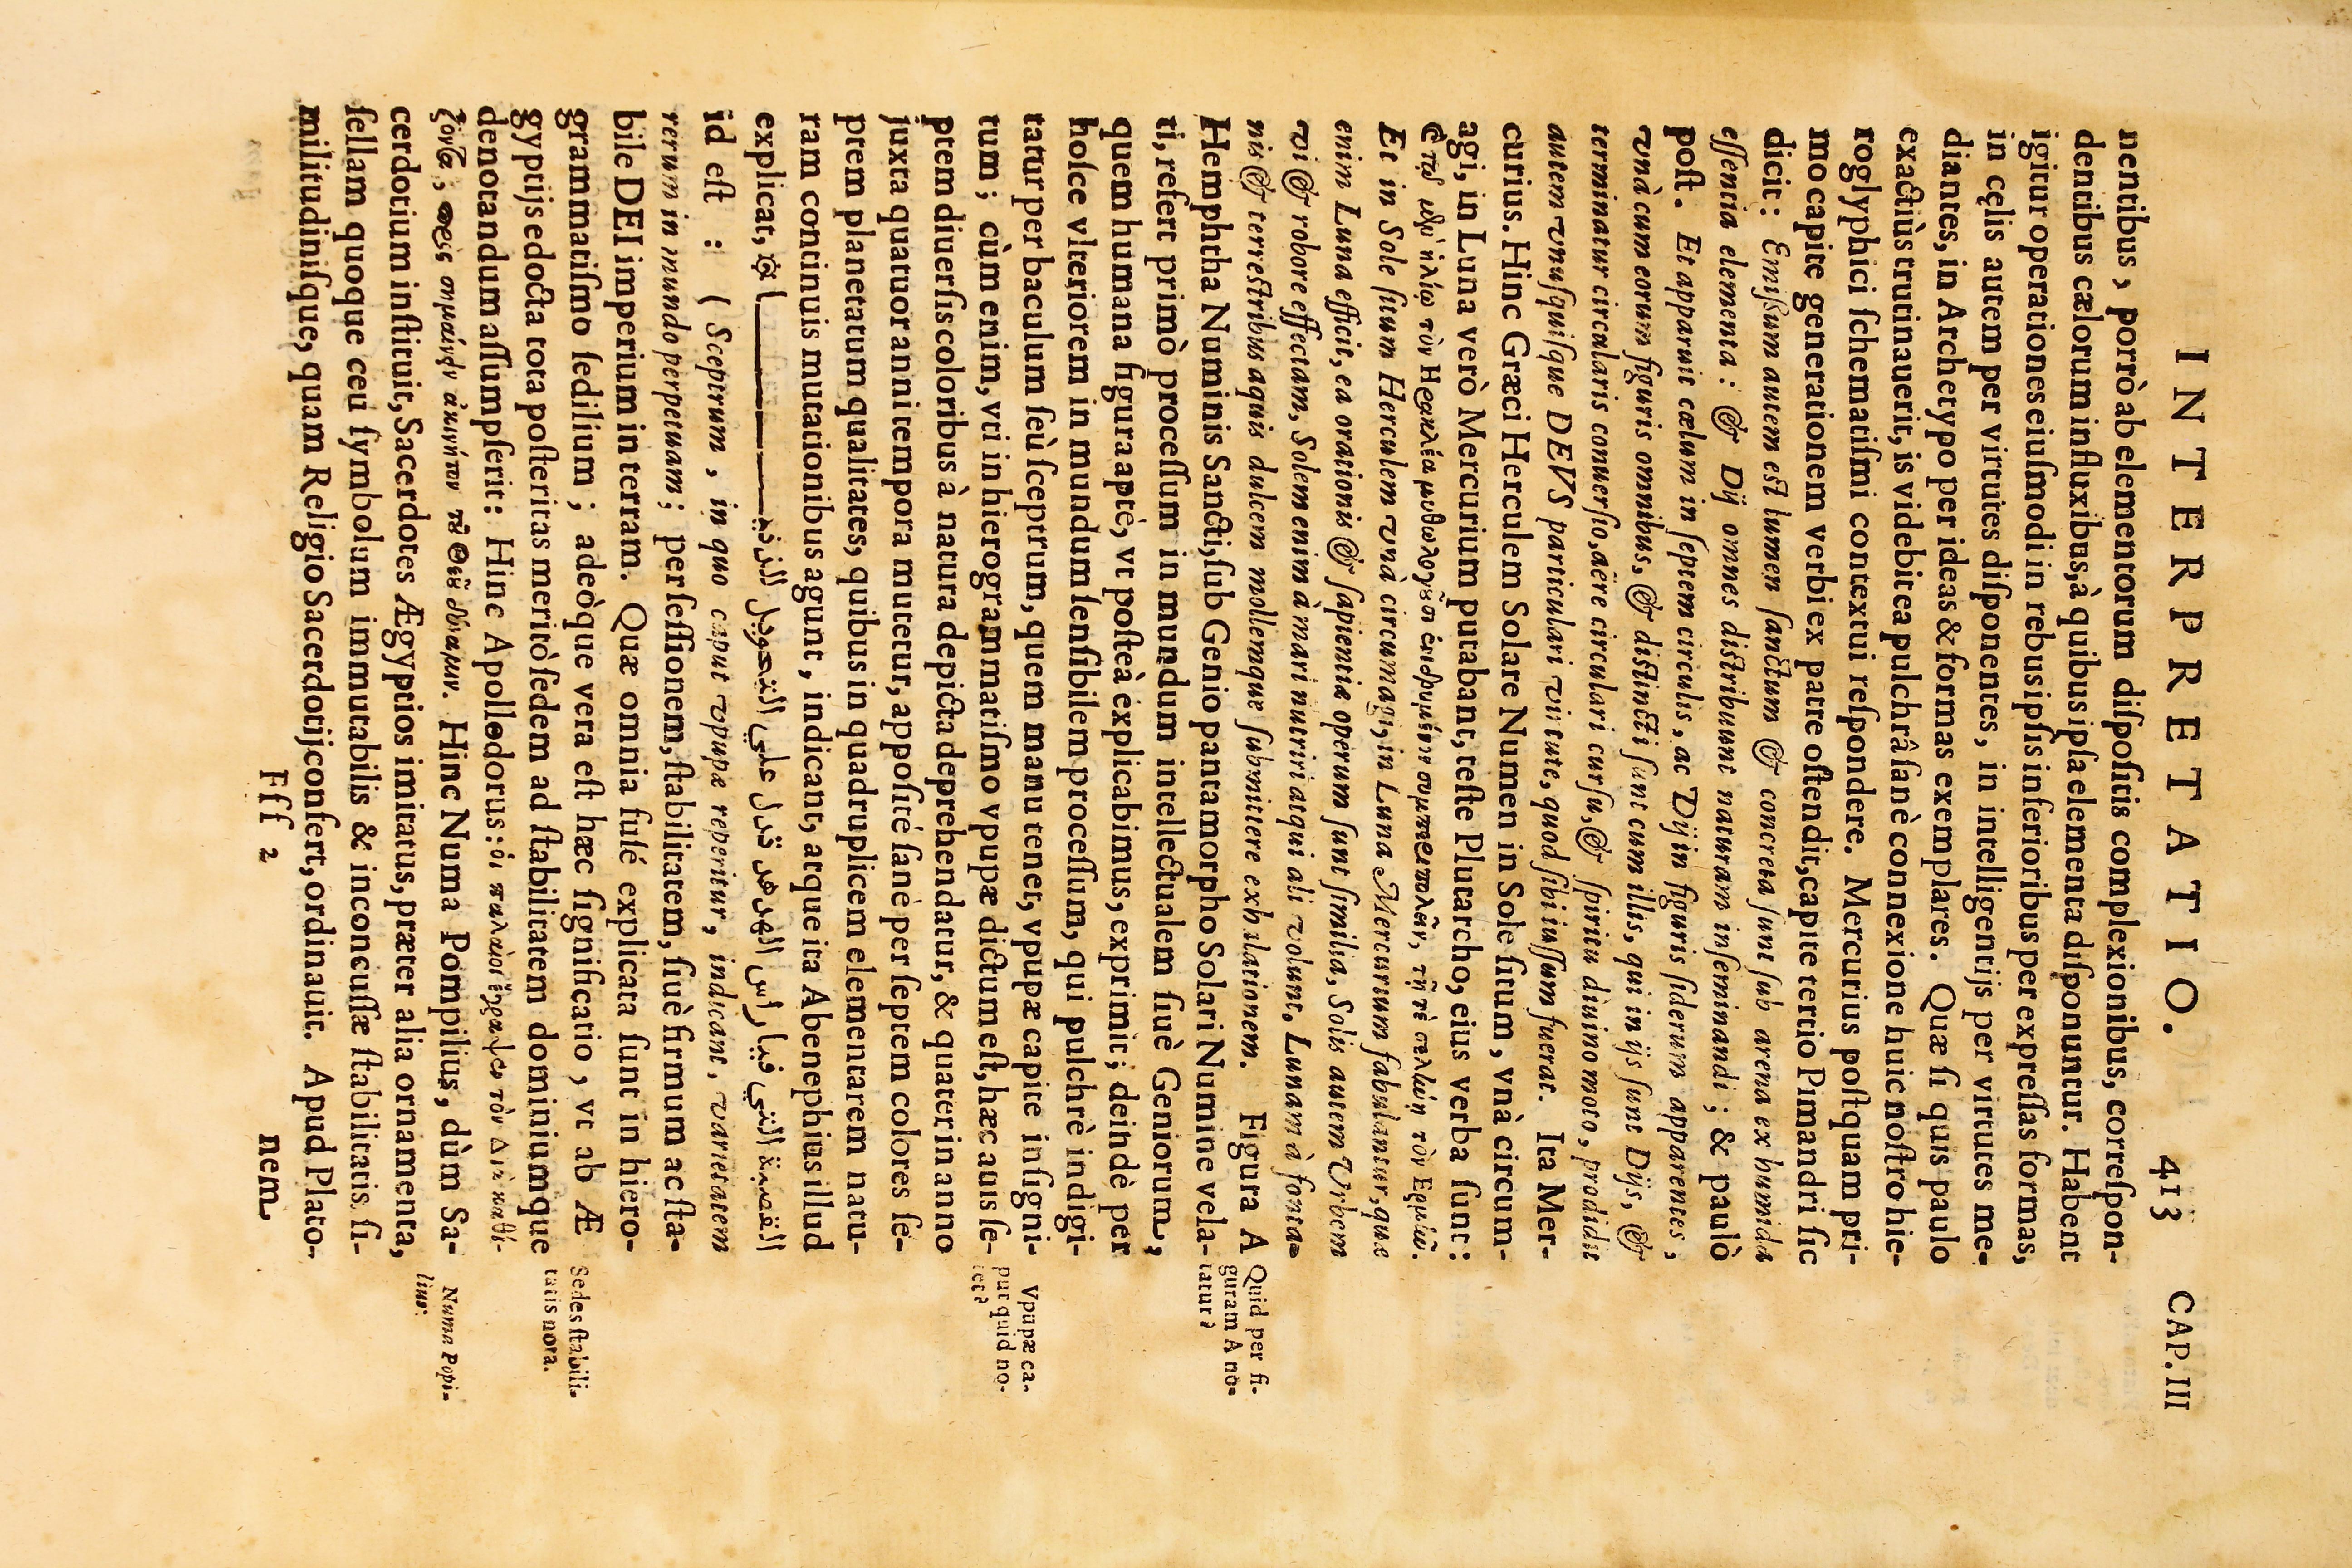 INTERPRETATIO. 413 CAP. III
nentibus, porrò ab elementorum diſpoſitis complexionibus, correſpon-
dentibus cælorum influxibus, à quibus ipſa elementa diſponuntur. Habent
igitur operationes eiuſmodi in rebus ipſis inferioribus per expreſſas formas,
in cęlis autem per virtutes diſponentes, in intelligentijs per virtutes me-
diantes, in Archetypo per ideas & formas exemplares. Quæ ſi quis paulo
exactiùs trutinauerit, is videbit ea pulchrâ ſanè connexione huic noſtro hie-
roglyphici ſchematiſmi contextui reſpondere. Mercurius poſtquam pri-
mo capite generationem verbi ex patre oſtendit, capite tertio Pimandri ſic
dicit: Emiſsum autem eſt lumen ſanctum & concreta ſunt ſub arena ex humida
eſſentia elementa: & Dij omnes diſtribuunt naturam inſeminandi; & paulò
poſt. Et apparuit cælum in ſeptem circulis, ac Dij in figuris ſiderum apparentes,
vnà cum eorum figuris omnibus, & diſtincti ſunt cum illis, qui in ijs ſunt Dijs, &
terminatur circularis conuerſio, aëre circulari curſu, & ſpiritu diuino moto, prodidit
autem vnuſquiſque DEVS particulari virtute, quod ſibi iuſſum fuerat. Ita Mer-
curius. Hinc Græci Herculem Solare Numen in Sole ſitum, vnà circum-
agi, in Luna verò Mercurium putabant, teſte Plutarcho, eius verba ſunt:
ἡλίῳ τὸν Ηρακλέα μυθολογοῦσι ἐνιδρυμένον συμπεριπολεῖν, τῇ τὲ σελήνῃ τὸν Ερμῆν.
Et in Sole ſitum Herculem vnà circumagi, in Luna Mercurium fabulantur, quæ
enim Luna efficit, ea orationis & ſapientiæ operum ſunt ſimilia, Solis autem Vrbem
vi & robore effectam, Solem enim à mari nutriri atqui ali volunt, Lunam à fonta-
nis & terreſtribus aquis dulcem mollemque ſubmittere exhalationem. Figura A
Hemphtha Numinis Sancti, ſub Genio pantamorpho Solari Numine vela-
ti, refert primò proceſſum in mundum intellectualem ſiuè Geniorum,
quem humana figura aptè, vt poſteà explicabimus, exprimit; deindè per
hoſce vlteriorem in mundum ſenſibilem proceſſum, qui pulchrè indigi-
tatur per baculum ſeù ſceptrum, quem manu tenet, vpupæ capite inſigni-
tum; cùm enim, vti in hierogrammatiſmo vpupæ dictum eſt, hæc auis ſe-
ptem diuerſis coloribus à natura depicta deprehendatur, & quater in anno
juxta quatuor anni tempora mutetur, appoſitè ſanè per ſeptem colores ſe-
ptem planetatum qualitates, quibus in quadruplicem elementarem natu-
ram continuis mutationibus agunt, indicant, atque ita Abenephius illud
explicat, القصبة التي فيها راس الهدهد تدل علي التحويل
id eſt : ( Sceptrum, in quo caput vpupæ reperitur, indicant, varietatem
rerum in mundo perpetuam; per ſeſſionem, ſtabilitatem, ſiuè firmum ac ſta-
bile DEI imperium in terram. Quæ omnia fuſé explicata ſunt in hiero-
grammatiſmo ſedilium; adeòque vera eſt hæc ſignificatio, vt ab Æ
gyptijs edocta tota poſteritas meritò ſedem ad ſtabilitatem dominiumque
denotandum aſſumpſerit: Hinc Apollodorus: ὁι παλαιοὶ ἔγραψεν τὸν Διὰ καθί-
ζοντα, πρὸς σημαίνειν ἀκινήτον τοῦ Θεοῦ δύναμιν. Hinc Numa Pompilius, dùm Sa-
cerdotium inſtituit, Sacerdotes Ægyptios imitatus, præter alia ornamenta,
ſellam quoque ceu ſymbolum immutabilis & inconcuſſæ ſtabilitatis ſi-
militudiniſque, quam Religio Sacerdotij confert, ordinauit. Apud Plato-
Fff 2 nem
Quid per fi-
guram A no-
tatur?
Vpupæ ca-
put quid no-
tet?
Sedes ſtabili-
tatis nota.
Numa Popi-
lius.